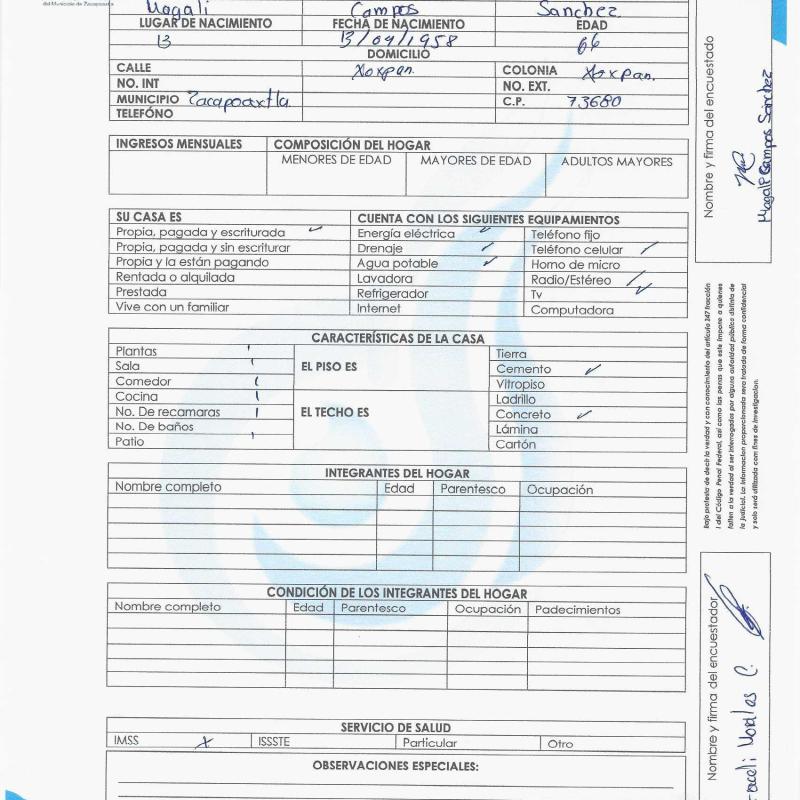 del Municipio de Zacapoaxtla
Magali Campos Sanchez
LUGAR DE NACIMIENTO FECHA DE NACIMIENTO EDAD
13 13/04/1958 66
DOMICILIO
CALLE Xoxpan. COLONIA Xoxpan.
NO. INT NO. EXT.
MUNICIPIO Zacapoaxtla. C.P. 73680
TELEFÓNO
INGRESOS MENSUALES COMPOSICIÓN DEL HOGAR
MENORES DE EDAD MAYORES DE EDAD ADULTOS MAYORES
SU CASA ES CUENTA CON LOS SIGUIENTES EQUIPAMIENTOS
Propia, pagada y escriturada ✓ Energía eléctrica ✓ Teléfono fijo
Propia, pagada y sin escriturar Drenaje ✓ Teléfono celular ✓
Propia y la están pagando Agua potable ✓ Horno de micro
Rentada o alquilada Lavadora Radio/Estéreo ✓
Prestada Refrigerador Tv ✓
Vive con un familiar Internet Computadora
CARACTERÍSTICAS DE LA CASA
Plantas 1 Tierra
Sala 1 EL PISO ES Cemento ✓
Comedor 1 Vitropiso
Cocina 1 Ladrillo
No. De recamaras 1 EL TECHO ES Concreto ✓
No. De baños Lámina
Patio 1 Cartón
INTEGRANTES DEL HOGAR
Nombre completo Edad Parentesco Ocupación
CONDICIÓN DE LOS INTEGRANTES DEL HOGAR
Nombre completo Edad Parentesco Ocupación Padecimientos
SERVICIO DE SALUD
IMSS X ISSSTE Particular Otro
OBSERVACIONES ESPECIALES:
Nombre y firma del encuestado
Magali Campos Sánchez
Bajo protesta de decir la verdad y con conocimiento del artículo 247 fracción
I del Código Penal Federal, así como las penas que este impone a quienes
falten a la verdad al ser interrogados por alguna autoridad pública distinta de
la judicial. La información proporcionada sera tratada de forma confidencial
y solo será utilizada con fines de investigacion.
Nombre y firma del encuestador
Araceli Morales C.